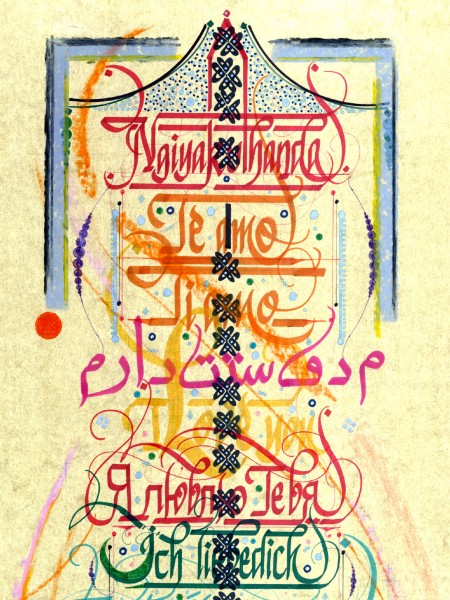 Ngiyakuthanda
Te amo
Ti amo
م دوستت دارم
you
Я люблю Тебя
Ich liebe dich